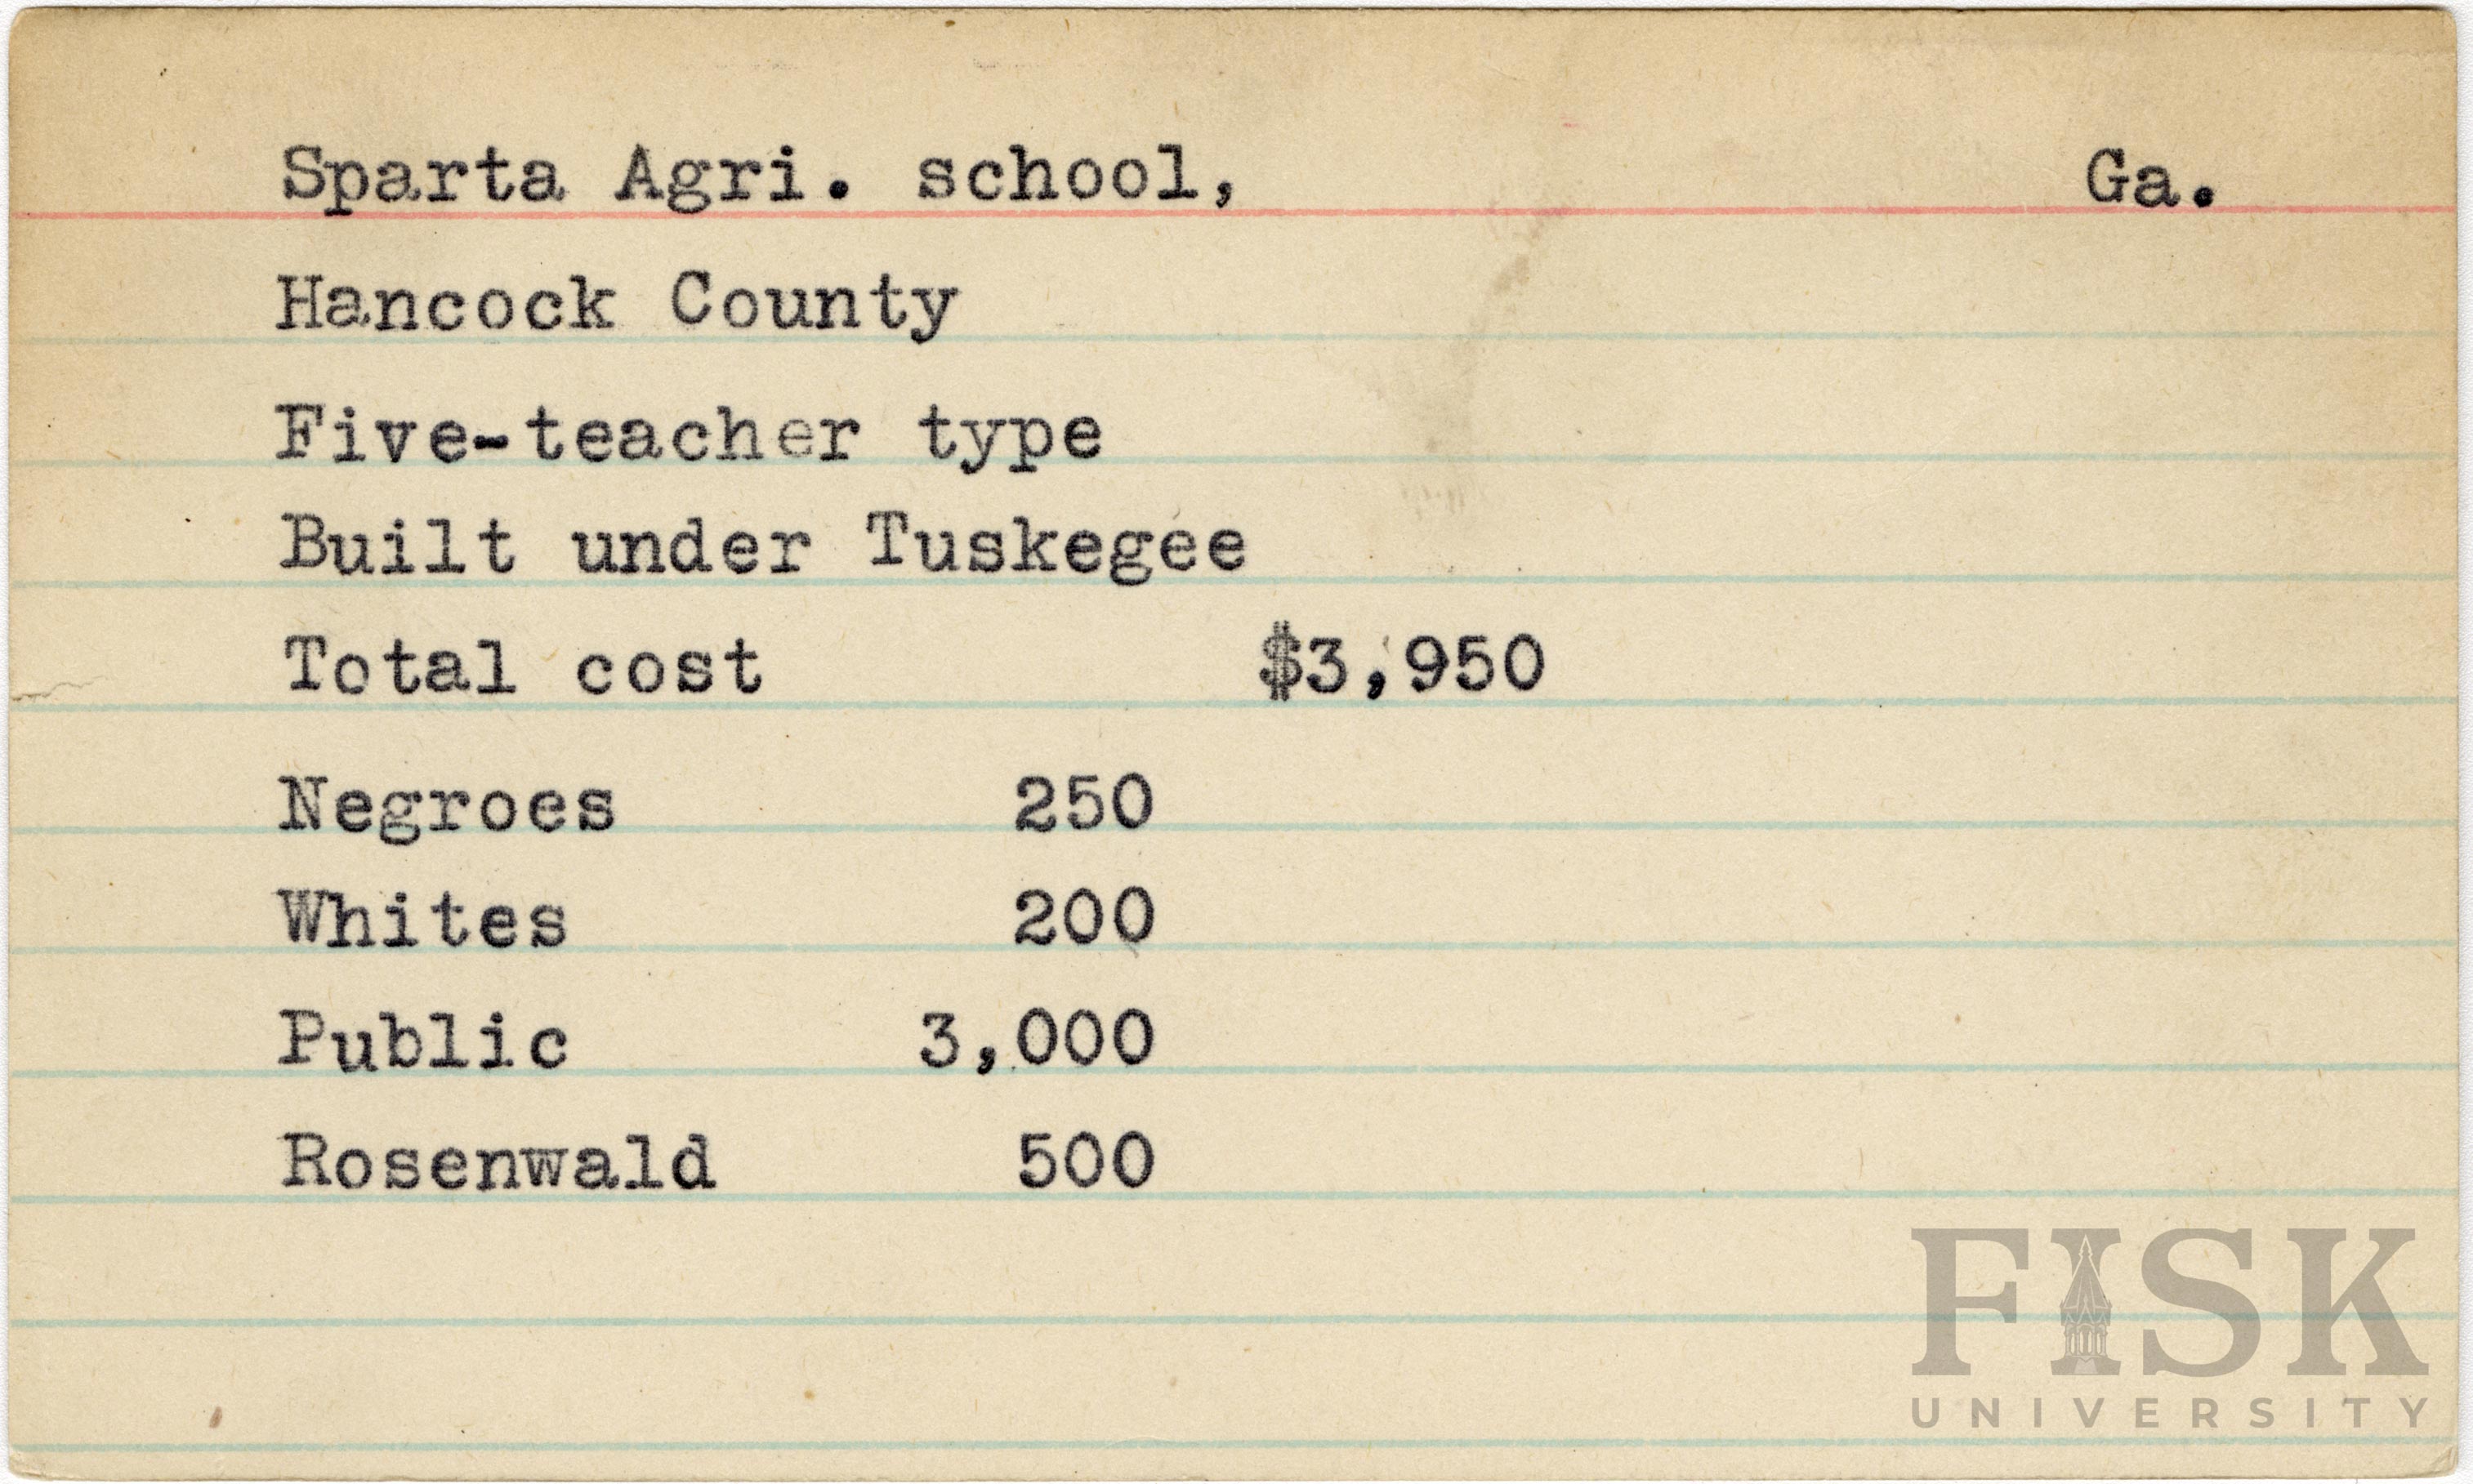 Sparta Agri. school, Ga.
Hancock County
Five-teacher type
Built under Tuskegee
Total cost $3,950
Negroes 250
Whites 200
Public 3,000
Rosenwald 500
FISK
UNIVERSITY